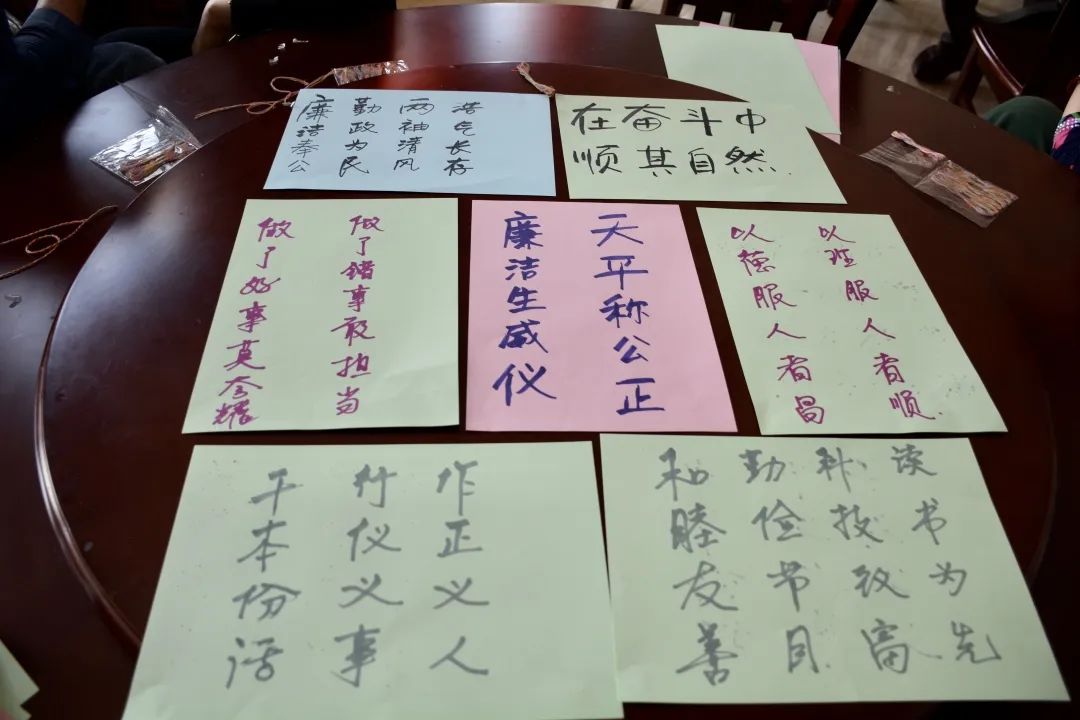 廉洁奉公
勤政为民
两袖清风
浩气长存
在奋斗中
顺其自然.
做了错事敢担当
做了好事莫夸耀
天平称公正
廉洁生威仪
以理服人者顺.
以德服人者昌
作正义人
行仪义事
干本份活
读书为先
科技致富
勤俭节目
和睦友善